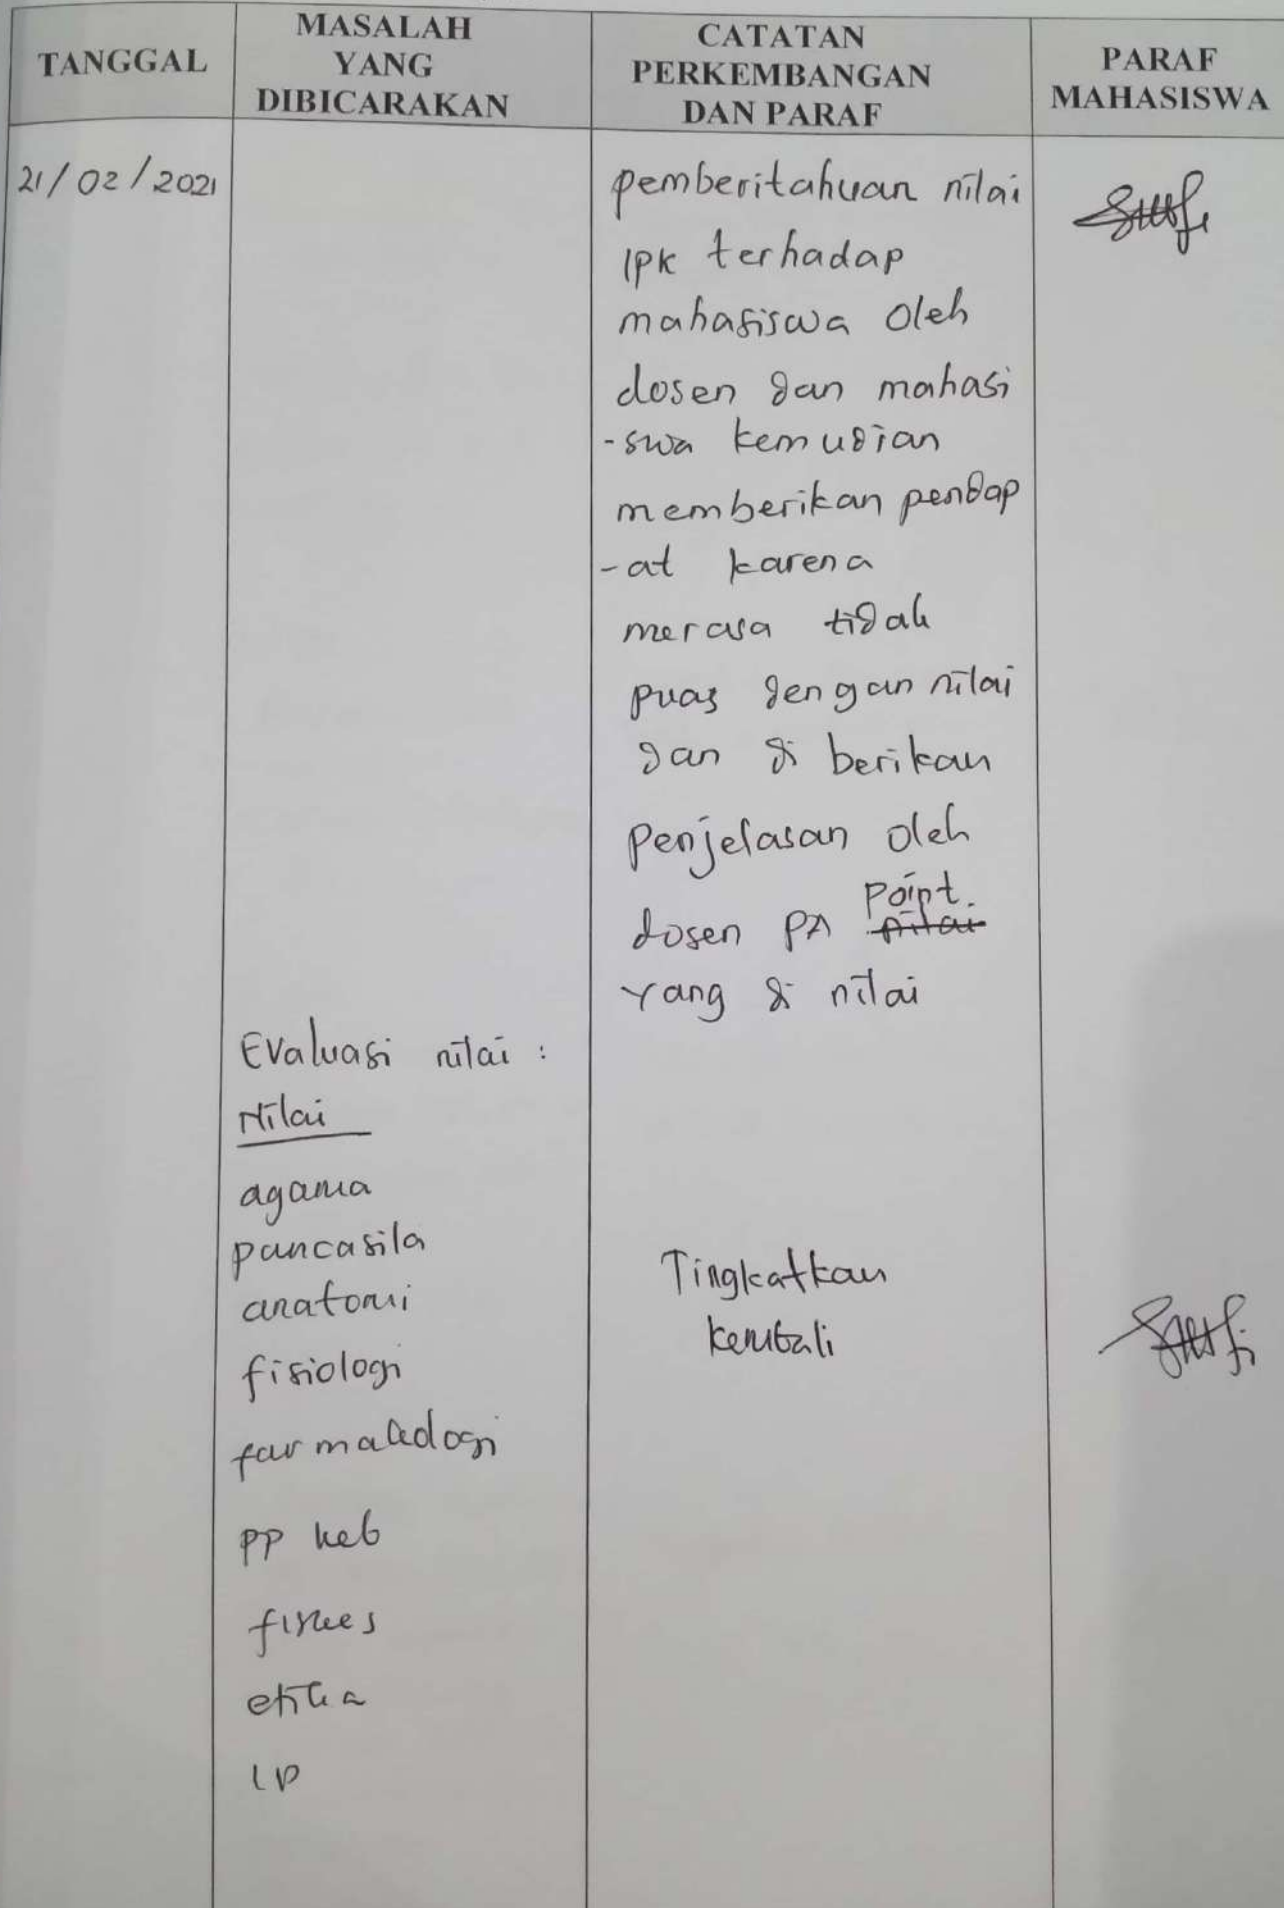 TANGGAL
MASALAH
YANG
DIBICARAKAN
CATATAN
PERKEMBANGAN
DAN PARAF
PARAF
MAHASISWA
21/02/2021
pemberitahuan nilai
IPK terhadap
mahasiswa oleh
dosen dan mahasi
-swa kemudian
memberikan pendap
-at karena
merasa tidak
puas dengan nilai
dan di berikan
penjelasan oleh
dosen PA point.
yang di nilai
Evaluasi nilai :
Nilai
agama
pancasila
anatomi
fisiologi
farmakologi
pp keb
etika
Tingkatkan
kembali